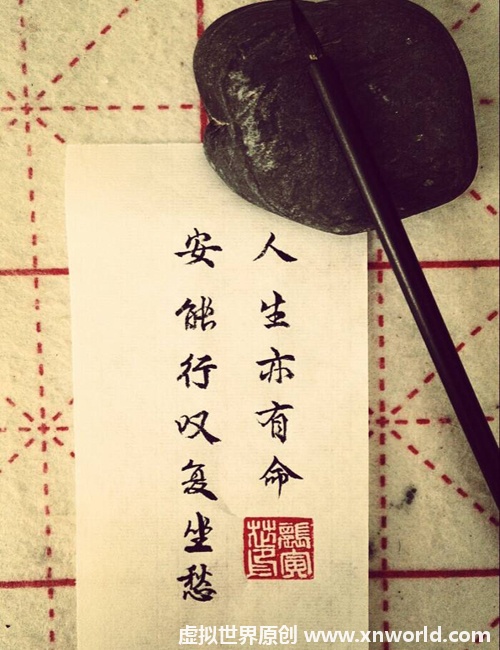 人生亦有命
安能行叹复坐愁
虚拟世界原创 www.xnworld.com